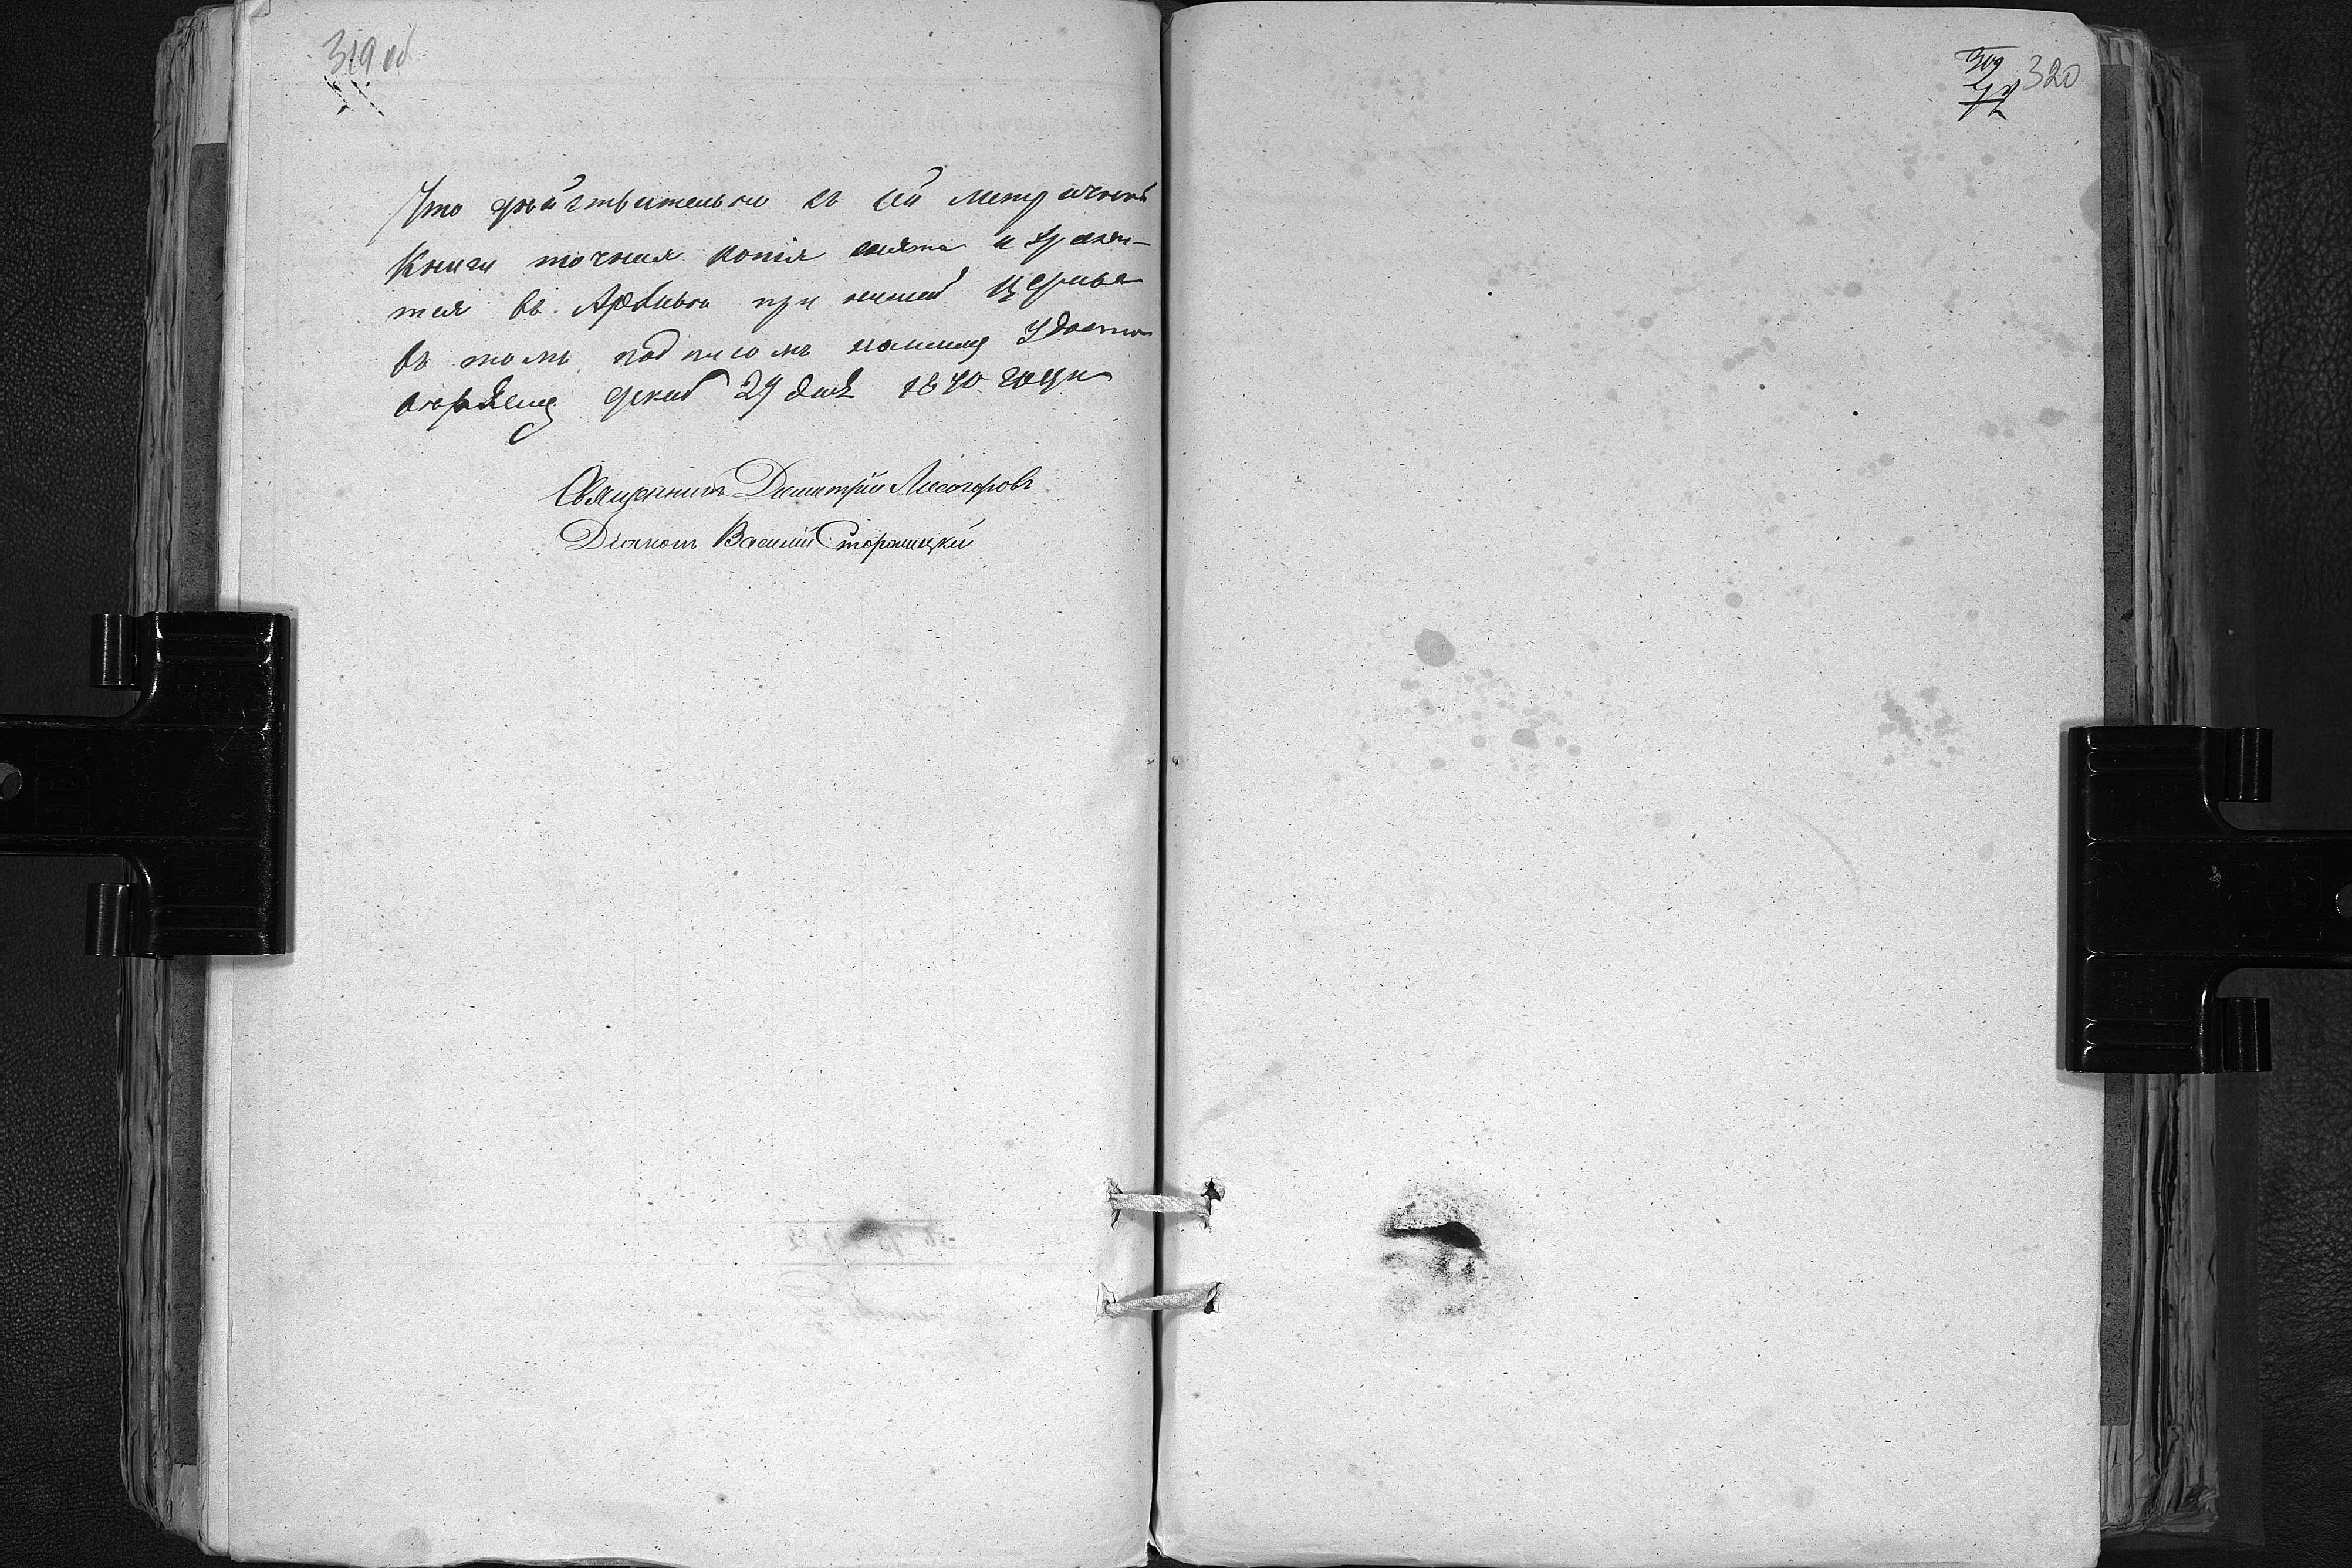 319 об
Что действительно съ сей метрической
Книги точная копія снята и хранит-
тся въ Архивѣ при нашей церкви
въ томъ подписомъ нашимъ удосто
вѣряемъ декаб 29 дня 1870 года
Священникъ Димитрій
Діаконъ Василій
320